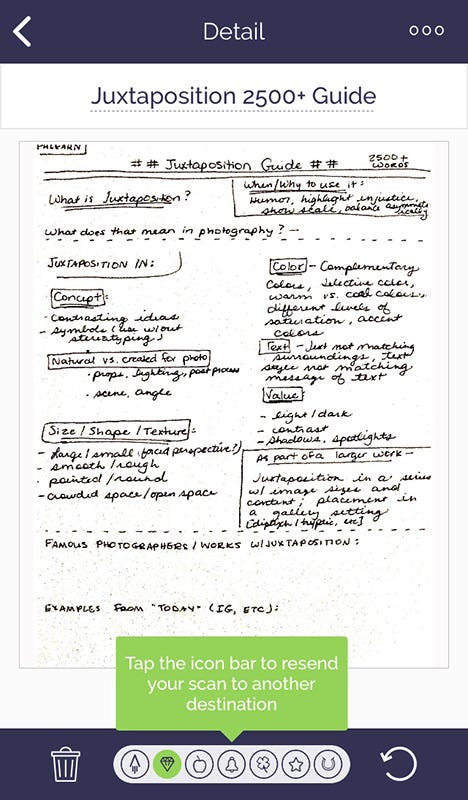 Detail
Juxtaposition 2500+ Guide
PHLEARN
# # Juxtaposition Guide # #
2500+
WORDS
What is Juxtaposition?
When/Why to use it:
Humor, highlight injustice,
show scale, balance
What does that mean in photography? —
JUXTAPOSITION IN:
Concept:
- Contrasting ideas
- symbols (use w/out
stereotyping)
Natural vs. created for photo
• props, lighting, post process
• scene, angle
Size / Shape / Texture:
- large / small (forced perspective?)
- smooth / rough
- pointed / round
- crowded space / open space
Color - Complementary
Colors, selective color,
warm vs. cool colours,
different levels of
saturation, accent
colors
Text - Text not matching
surroundings, text
styles not matching
message of text
Value:
- light / dark
- contrast
- shadows, spotlights
As part of a larger work -
Juxtaposition in a series
w/ image sizes and
content; placement in
a gallery setting
[diptych / triptic, etc]
FAMOUS PHOTOGRAPHERS / WORKS W/JUXTAPOSITION:
EXAMPLES FROM "TODAY" (IG, ETC):
Tap the icon bar to resend
your scan to another
destination